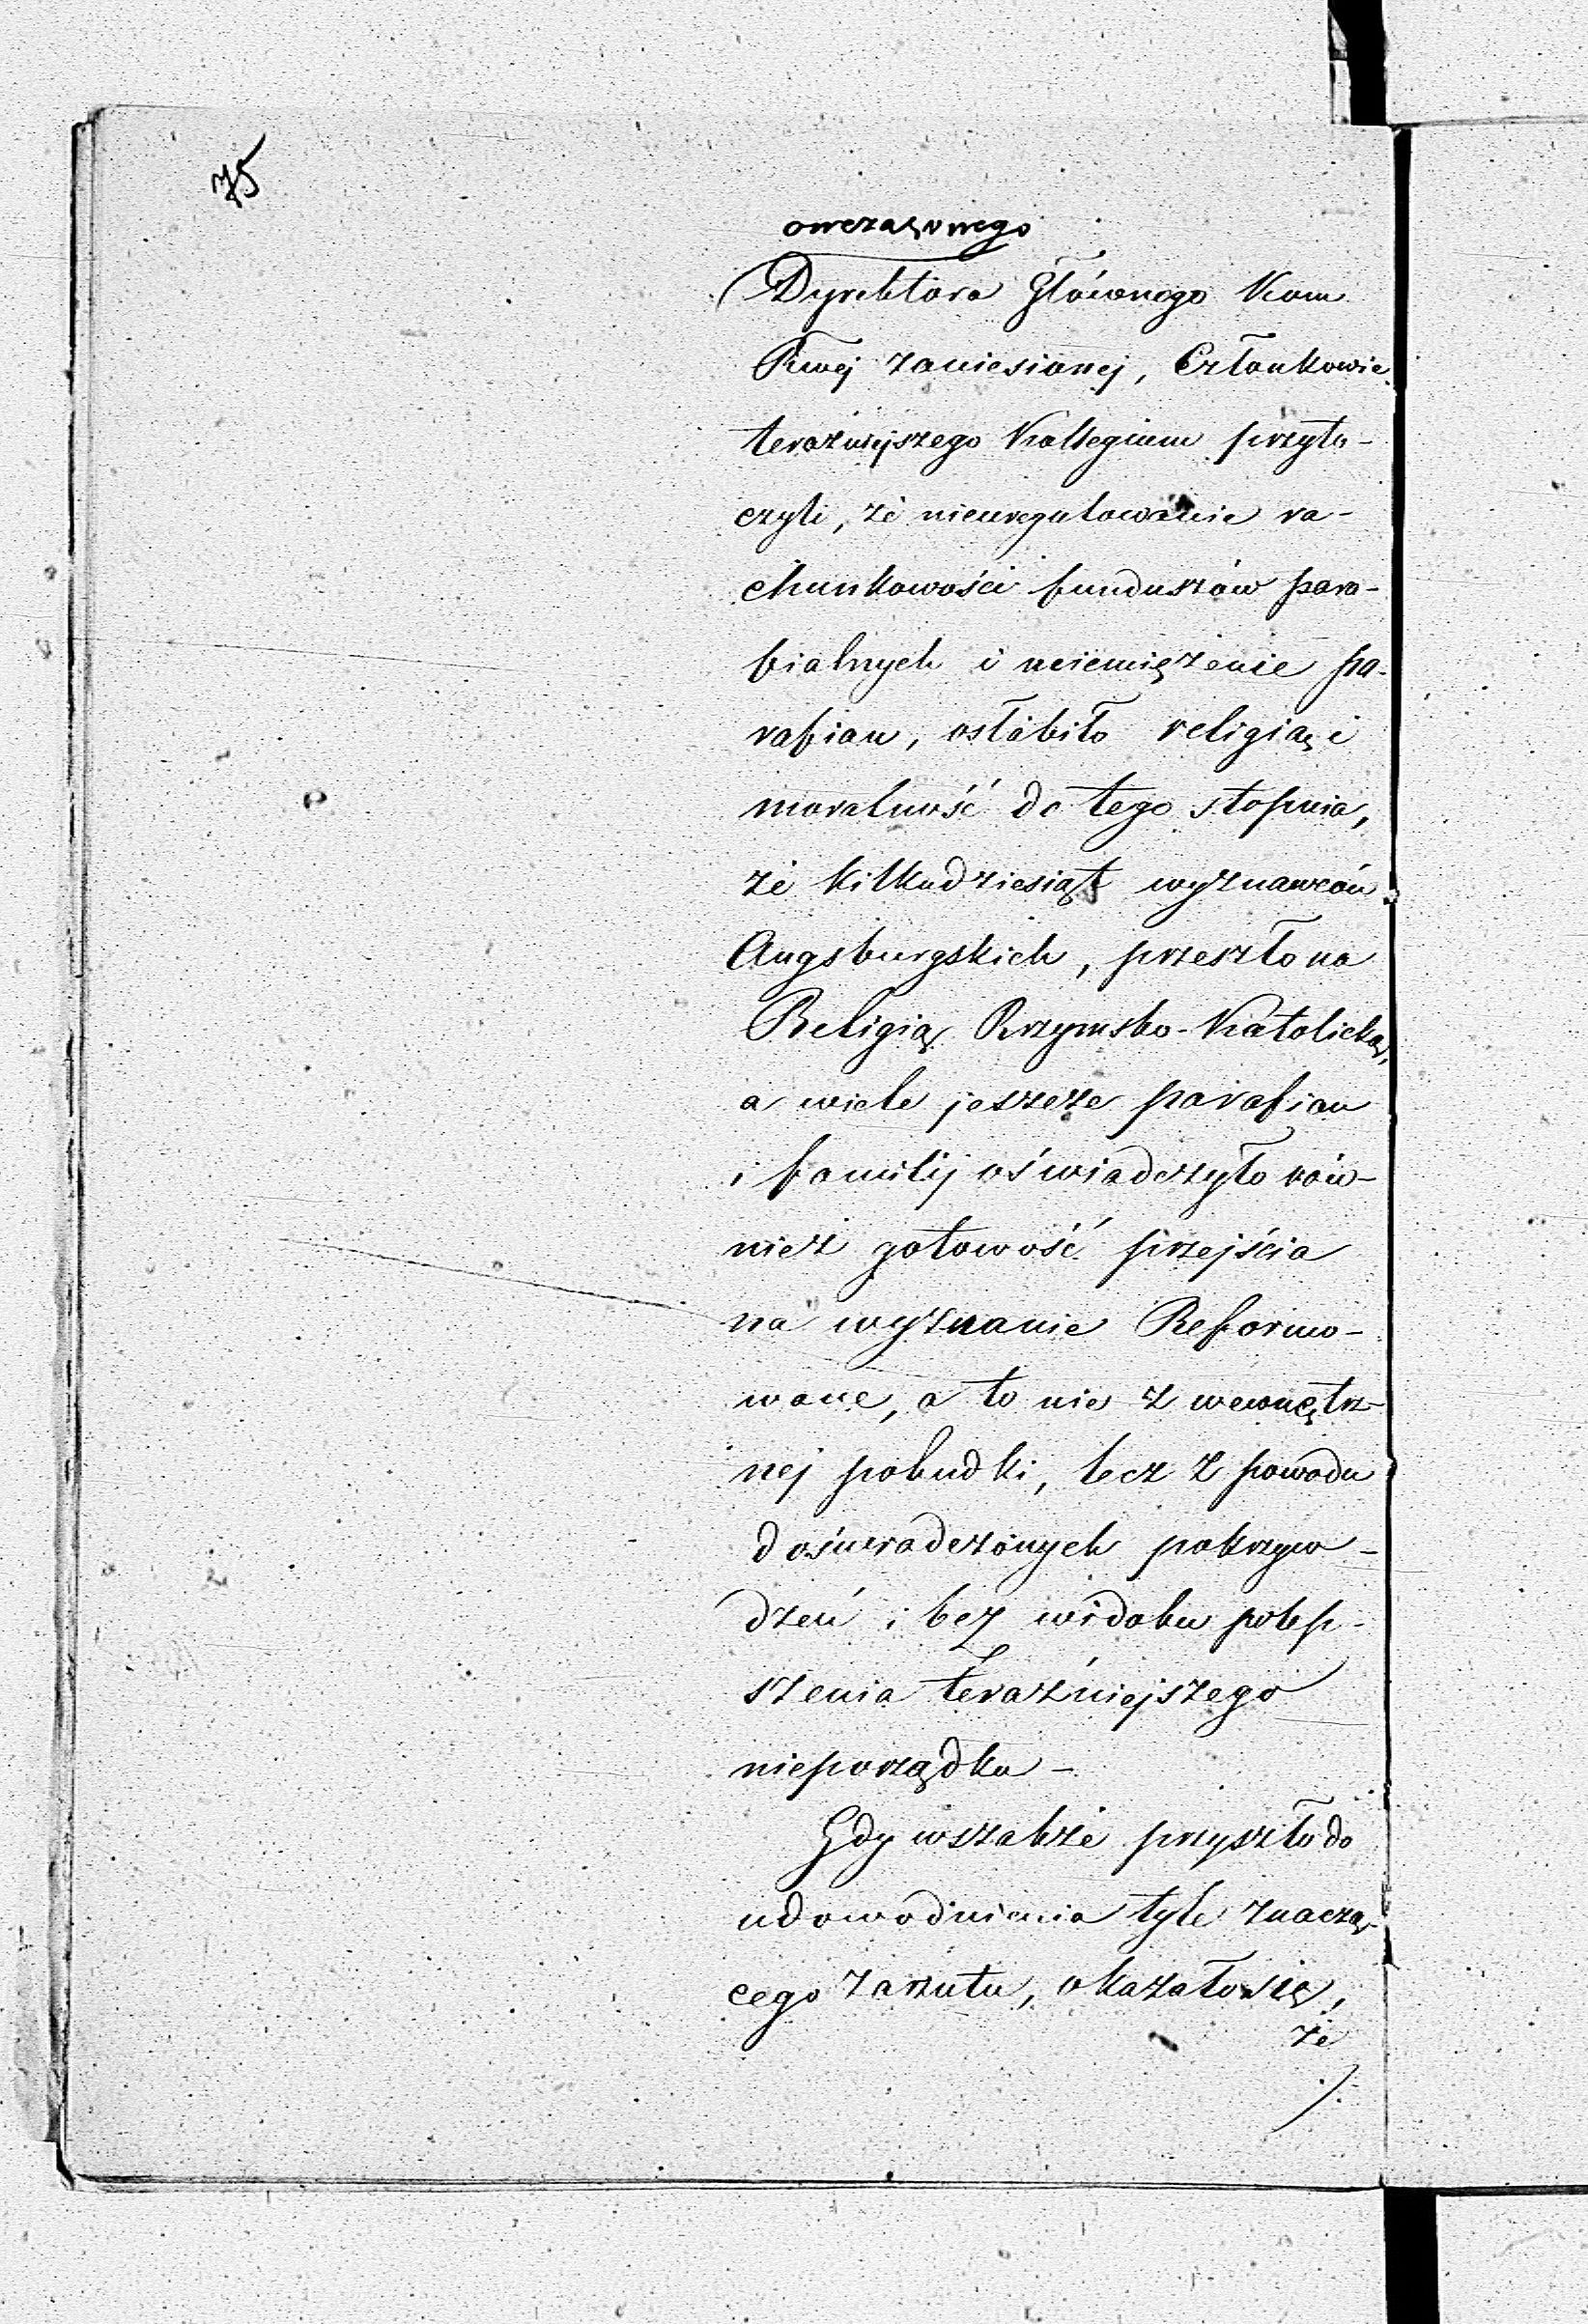 75
owczasowego
Dyrektora Głównego Kom
Rwej zaniesionej, Członkowie
teraźniejszego Kollegium przyto-
czyli, że nieuregulowanie ra-
chunkowości funduszów para-
fialnych i uciemiężenie pa-
rafian, osłabiło religią i
moralność do tego stopnia,
że kilkudziesiąt wyznawców
Augsburgskich, przeszło na
Religią Rzymsko-Katolicką,
a wiele jeszcze parafian
i familij oświadczyło rów-
nież gotowość przejścia
na wyznanie Reformo-
wane, a to nie z wewnętrz-
nej pobudki, lecz z powodu
doświadczonych pokrzyw-
dzeń i bez widoku polep-
szenia teraźniejszego
nieporządku -
Gdy wszakże przyszło do
udowodnienia tyle znaczą-
cego zarzutu, okazało się,
że